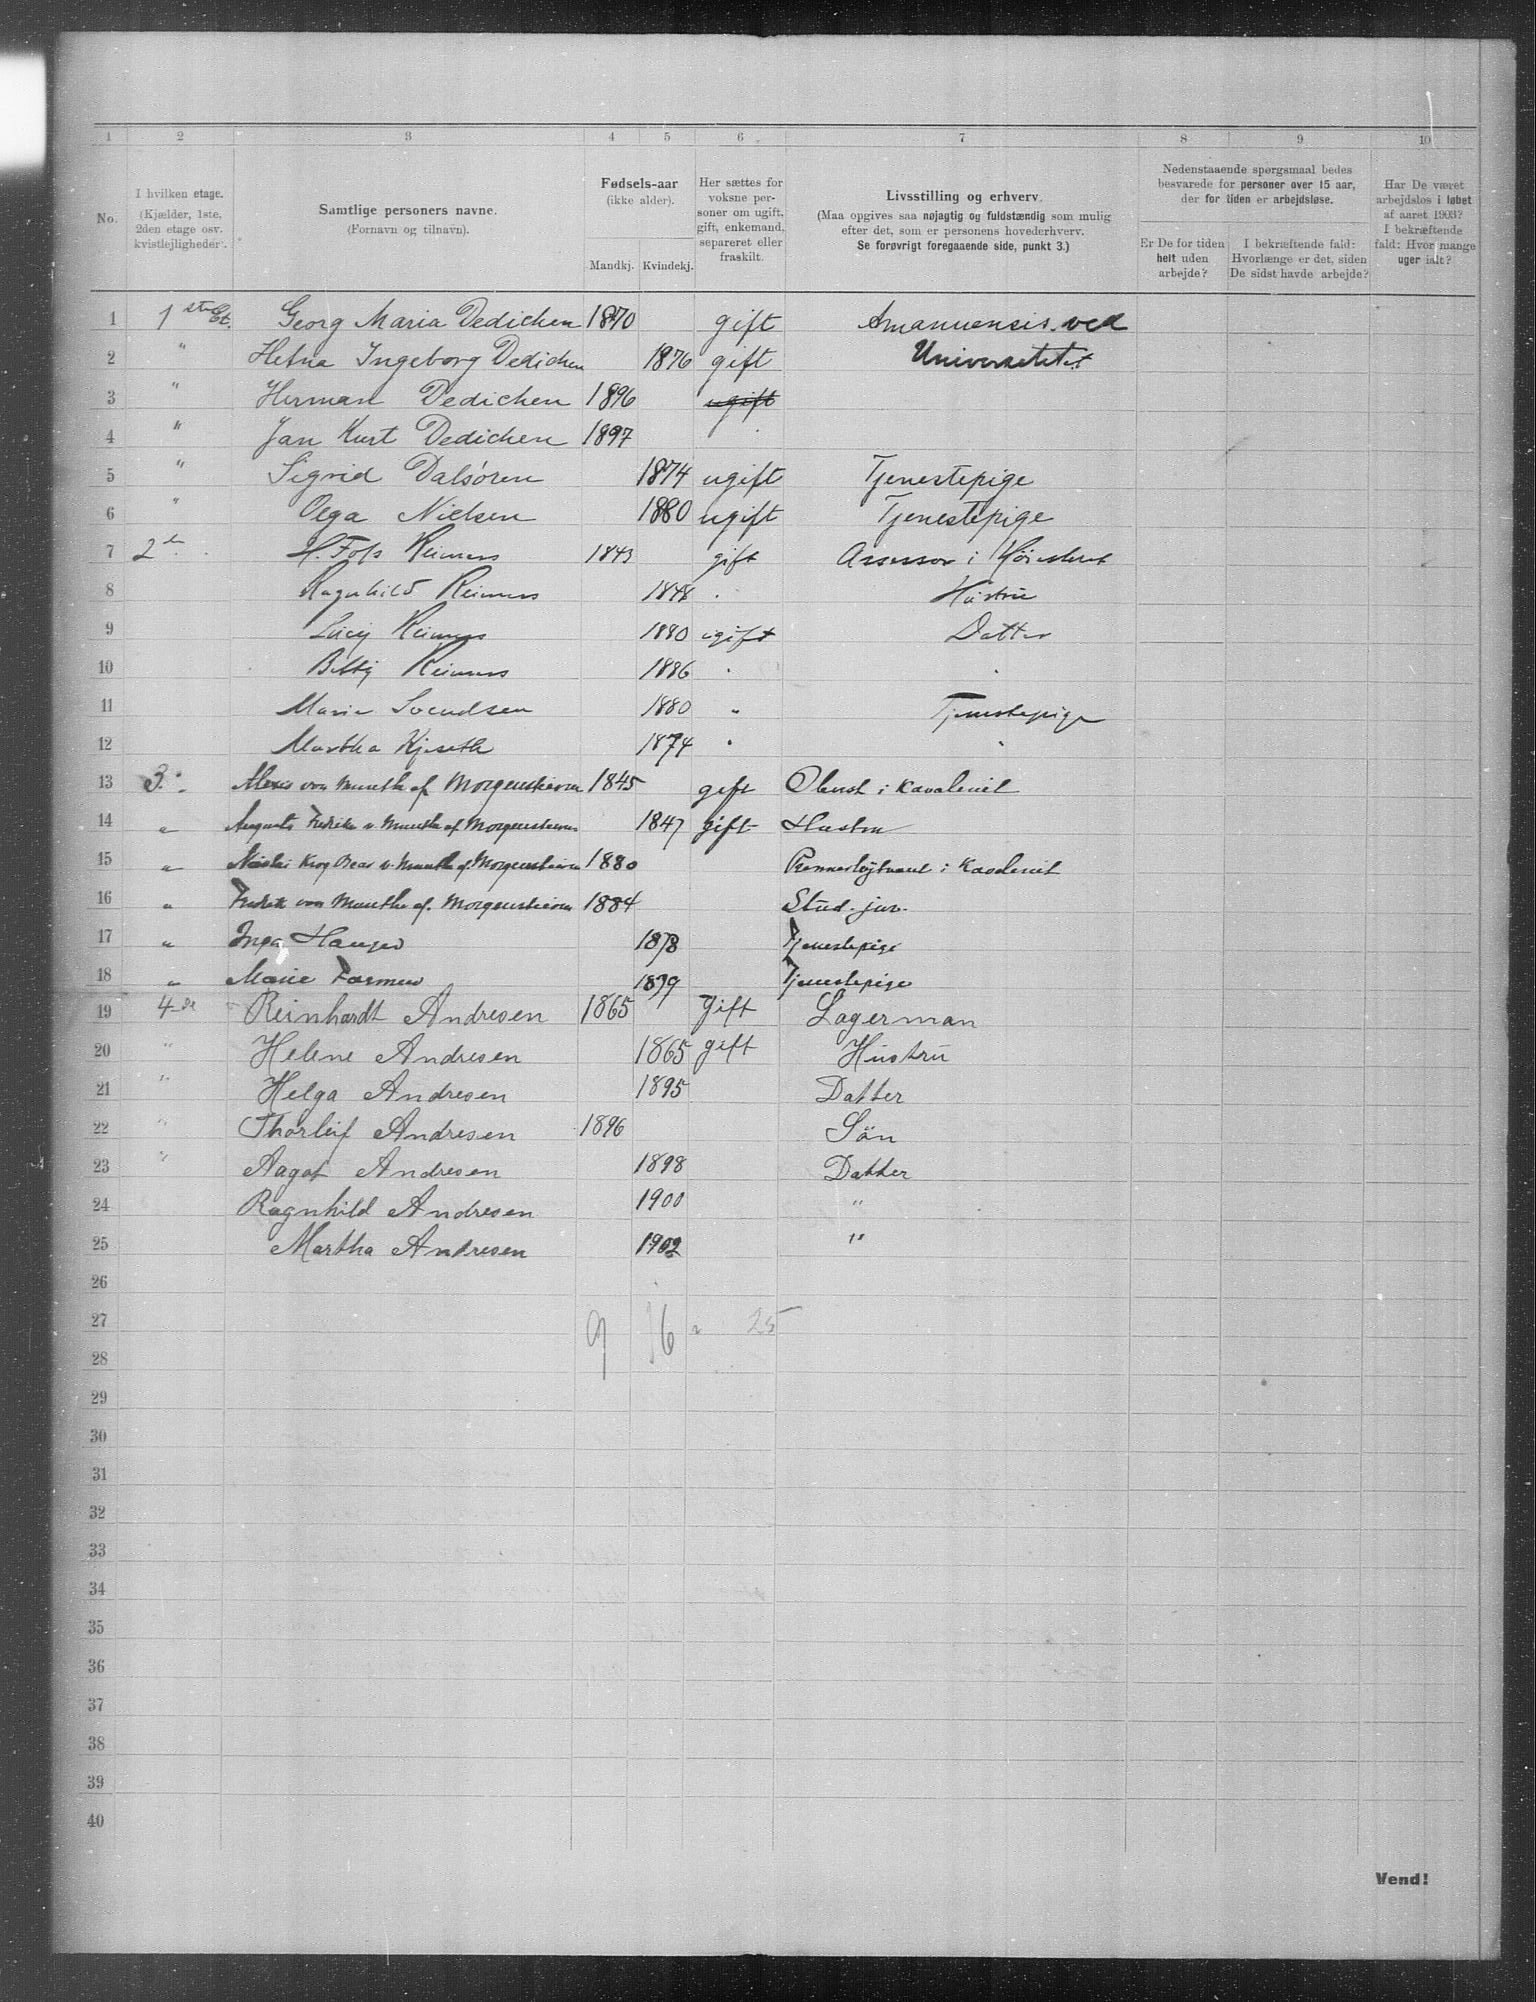 1 2 3 4 5 6 7 8 9 10
No.
I hvilken etage. (Kjælder, 1ste, 2den etage osv. kvistlejligheder).
Samtlige personers navne. (Fornavn og tilnavn).
Fødsels-aar (ikke alder).
Mandkj. Kvindekj.
Her sættes for voksne personer om ugift, gift, enkemand, separeret eller fraskilt.
Livsstilling og erhverv.
(Maa opgives saa nøjagtig og fuldstændig som mulig efter det, som er personens hovederhverv.
Se forøvrigt foregaaende side, punkt 3.)
Nedenstaaende spørgsmaal bedes besvarede for personer over 15 aar, der for tiden er arbejdsløse.
Er De for tiden helt uden arbejde?
I bekræftende fald: Hvorlænge er det, siden De sidst havde arbejde?
Har De været arbejdsløs i løbet af aaret 1903? I bekræftende fald: Hvor mange uger ialt?
1 1ste Et. Georg Maria Dedichen 1870 gift Amanuensis ved
2 " Helna Ingeborg Dedichen 1876 gift Universitetet
3 " Herman Dedichen 1896 ugift
4 " Jan Kurt Dedichen 1897
5 " Sigrid Dalsören 1874 ugift Tjenestepige
6 " Olga Nielsen 1880 ugift Tjenestepige
7 2 H. Reimers 1843 gift Assessor i Høiesteret
8 Ragnhild Reimers 1848 " Hustru
9 Lucy Reimers 1880 ugift Datter
10 Betty Reimers 1886 " "
11 Marie Svendsen 1880 " Tjenestepige
12 Martha Kjseth 1874 " "
13 3. Alexis von Munthe af Morgenstierne 1845 gift Oberst i Kavaleriet
14 " Augusta Fredrikke v Munthe af Morgenstierne 1847 gift Hustru
15 " Nicolai Krog Bree v. Munthe af Morgenstierne 1880 Premierløitnant i Kavaleriet
16 " Fredrik von Munthe af. Morgenstierne 1884 Stud. jur.
17 " Inga 1878 Tjenestepige
18 " Marie 1879 Tjenestepige
19 4de Reinhardt Andresen 1865 gift Lagerman
20 " Helene Andresen 1865 gift Hustru
21 " Helga Andresen 1895 Datter
22 " Thorleif Andresen 1896 Sön
23 " Aagot Andresen 1898 Datter
24 Ragnhild Andresen 1900 "
25 Martha Andresen 1902 "
26
27 9 16 = 25
28
29
30
31
32
33
34
35
36
37
38
39
40
Vend!